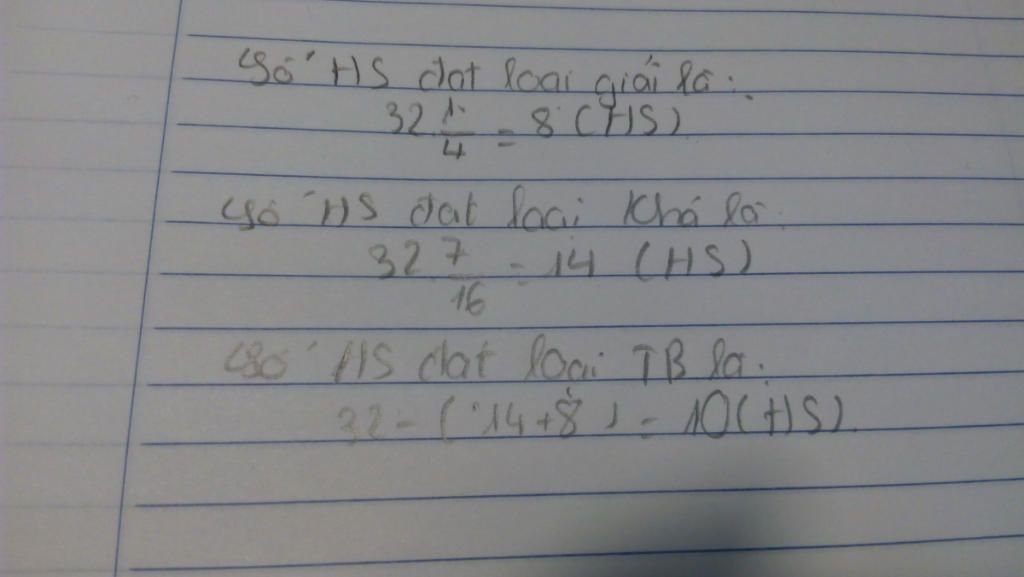 Số HS đạt loại giỏi là:
32 1/4 = 8 (HS)
Số HS đạt loại Khá là
32 7/16 = 14 (HS)
Số HS đạt loại TB là:
32 - (14+8) = 10 (HS).